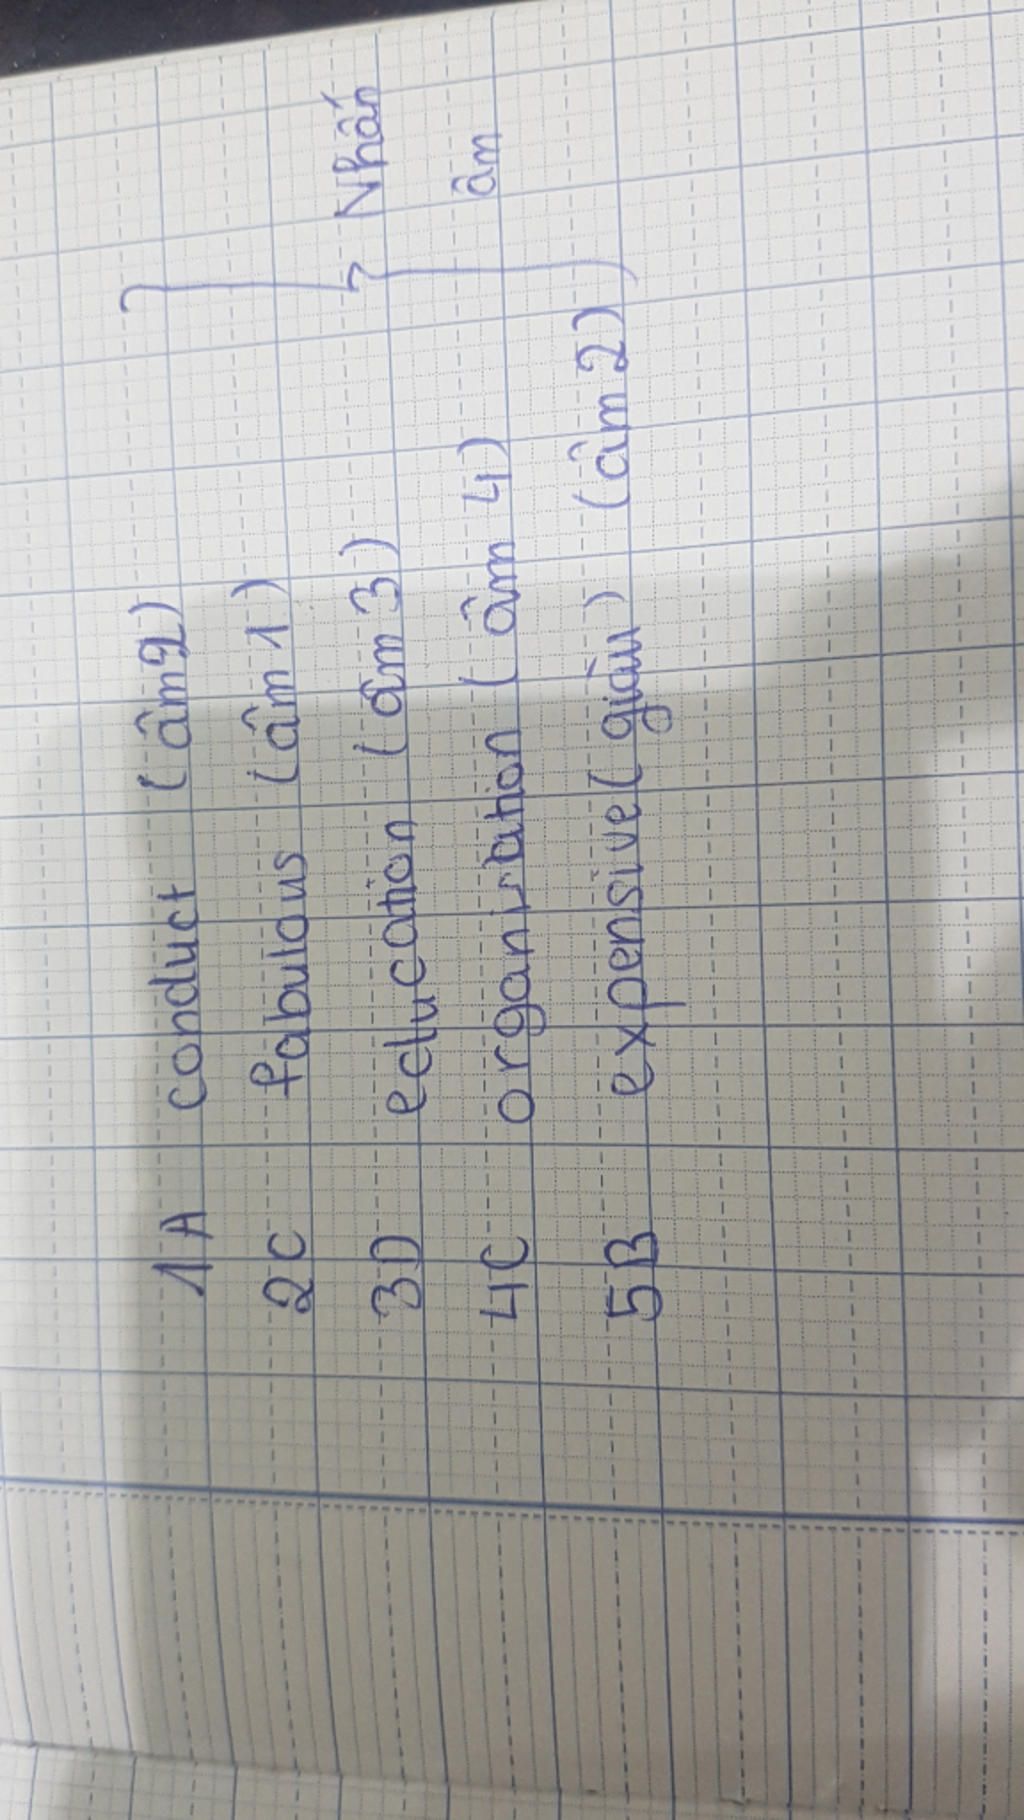 1A conduct (âm 2)
2C fabulous (âm 1)
3D education (âm 3)
4C organisation (âm 4)
5B expensive (giàu) (âm 2)
Nhấn
âm